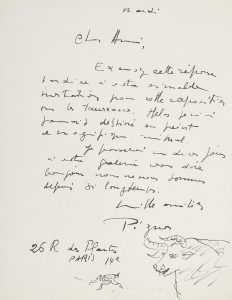 mardi
Cher Ami,
Excusez cette réponse
tardive à votre aimable
invitation pour cette exposition
sur les Taureaux. Hélas je n'ai
jamais dessiné ou peint
ce magnifique animal
Je passerai un de ces jours
à votre galerie vous dire
bonjour nous nous sommes
depuis si longtemps.
mille amitiés
Pignon
26 R des Plantes
PARIS 14e